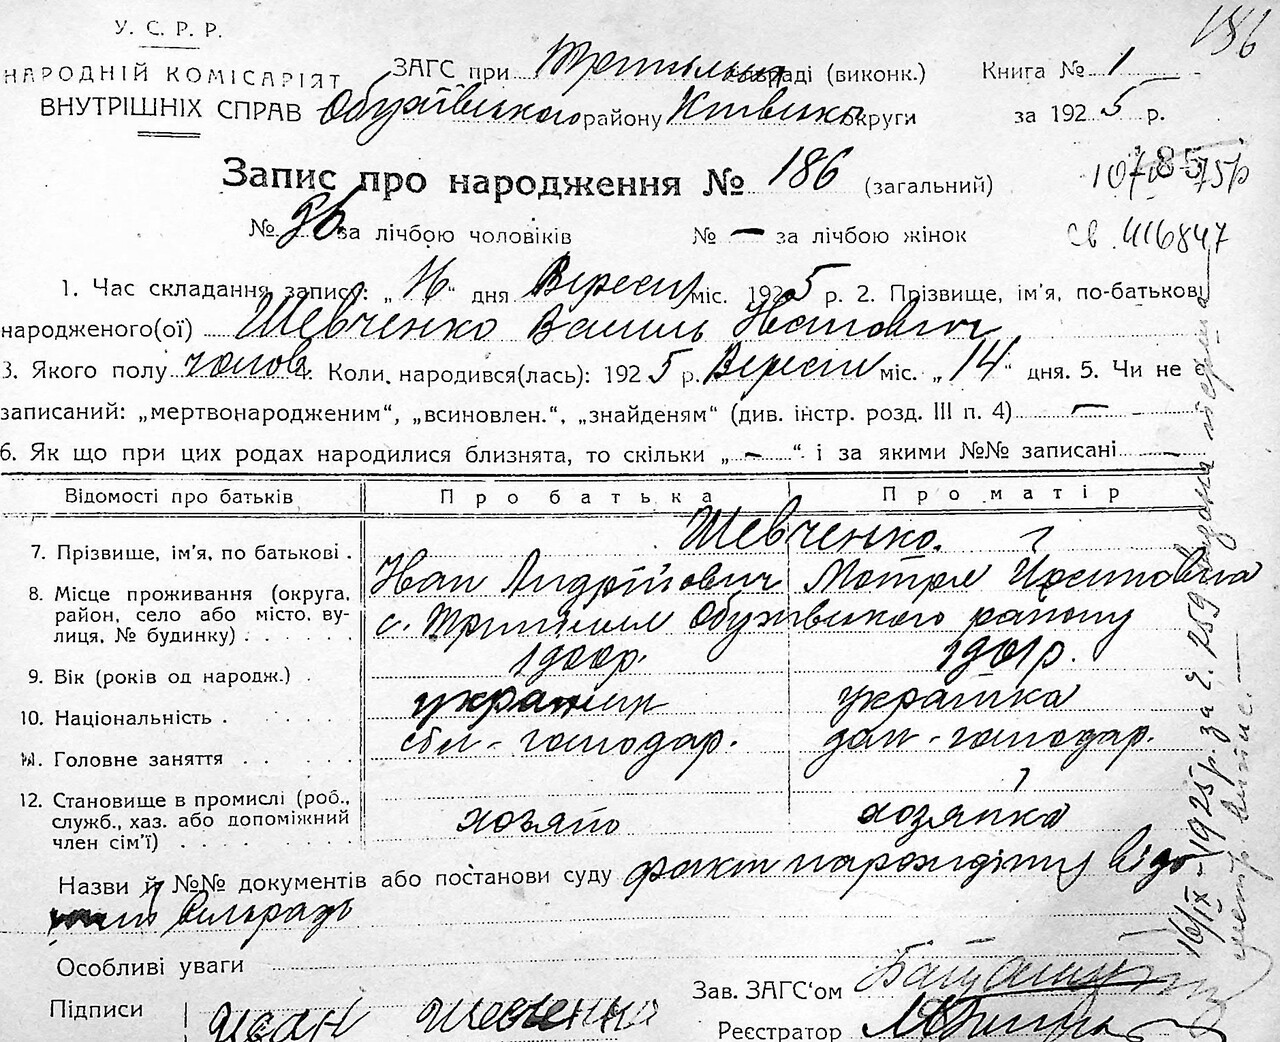 186
У. С. Р. Р.
НАРОДНІЙ КОМІСАРІЯТ
ВНУТРІШНІХ СПРАВ
ЗАГС при сільраді (виконк.)
Обухівського району Київськ округи
Книга № 1
за 1925 р.
Запис про народження № 186 (загальний)
№ 96 за лічбою чоловіків № — за лічбою жінок
св. 416847
1. Час складання запису: „16“ дня Вересня міс. 1925 р. 2. Прізвище, ім'я, по-батькові
народженого(ої) Шевченко Василь Іванович
3. Якого полу чолов 4. Коли народився(лась): 1925 р. Вересня міс. „14“ дня. 5. Чи не є
записаний: „мертвонародженим“, „всиновлен.“, „знайденям“ (див. інстр. розд. III п. 4) —
6. Як що при цих родах народилися близнята, то скільки „—“ і за якими №№ записані —
Відомості про батьків Про батька Про матір
7. Прізвище, ім'я, по батькові . Шевченко.
Іван Андрійович Мотря
8. Місце проживання (округа,
район, село або місто, ву-
лиця, № будинку) . . . . . .
с. Трипілля Обухівського району
9. Вік (років од народж.) . 1900р. 1901р.
10. Національність . українець українка
11. Головне заняття . . сіл-господар. дом-господар.
12. Становище в промислі (роб.,
служб., хаз. або допоміжний
член сім'ї) . . . . . . . .
хозяїн хозяйка
Назви й №№ документів або постанови суду факт народження
Особливі уваги
Підписи Иван Шевченко
Зав. ЗАГС'ом
Реєстратор
16/IX-1925р. за ч. 259 видана
метр. випис.—